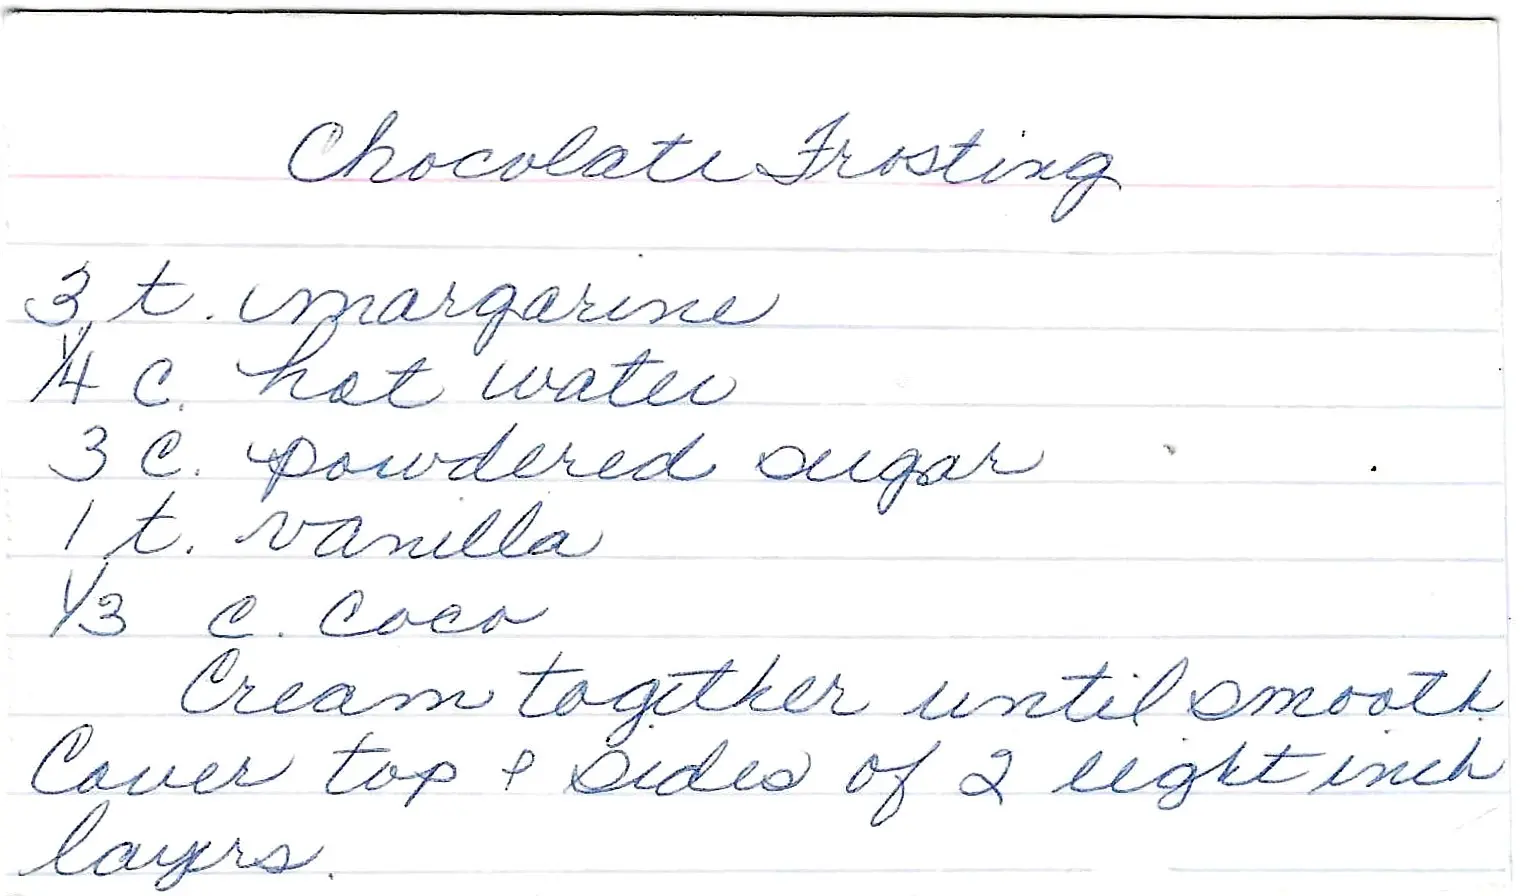 Chocolate Frosting
3 t. margarine
1/4 c. hot water
3 c. powdered sugar
1 t. vanilla
1/3 c. coco
Cream together until smooth
Cover top & sides of 2 eight inch
layers.